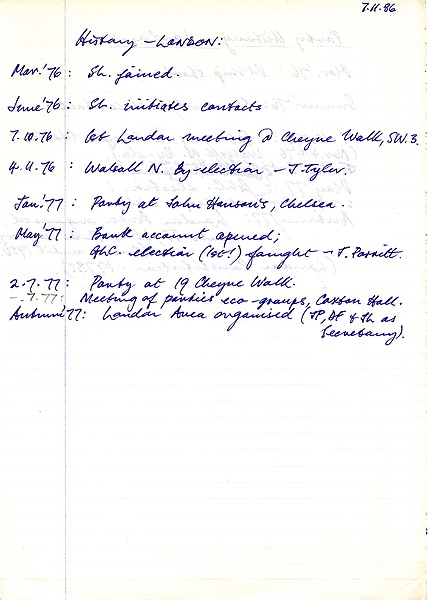 7.11.86
History - LONDON:
Mar.'76 : Sh. joined.
June '76 : Sh. initiates contacts
7.10.76 : 1st London meeting @ Cheyne Walk, SW.3.
4.11.76 : Walsall N. By-election - J. Tyler.
Jan.'77 : Party at John Hanson's, Chelsea.
May '77 : Bank account opened;
GLC. election (1st!) fought - J. Porritt.
2.7.77 : Party at 19 Cheyne Walk.
-.7.77: Meeting of parties eco-groups, Caxton Hall.
Autumn '77: London Area organised (JP, DF & Sh as
Secretary).